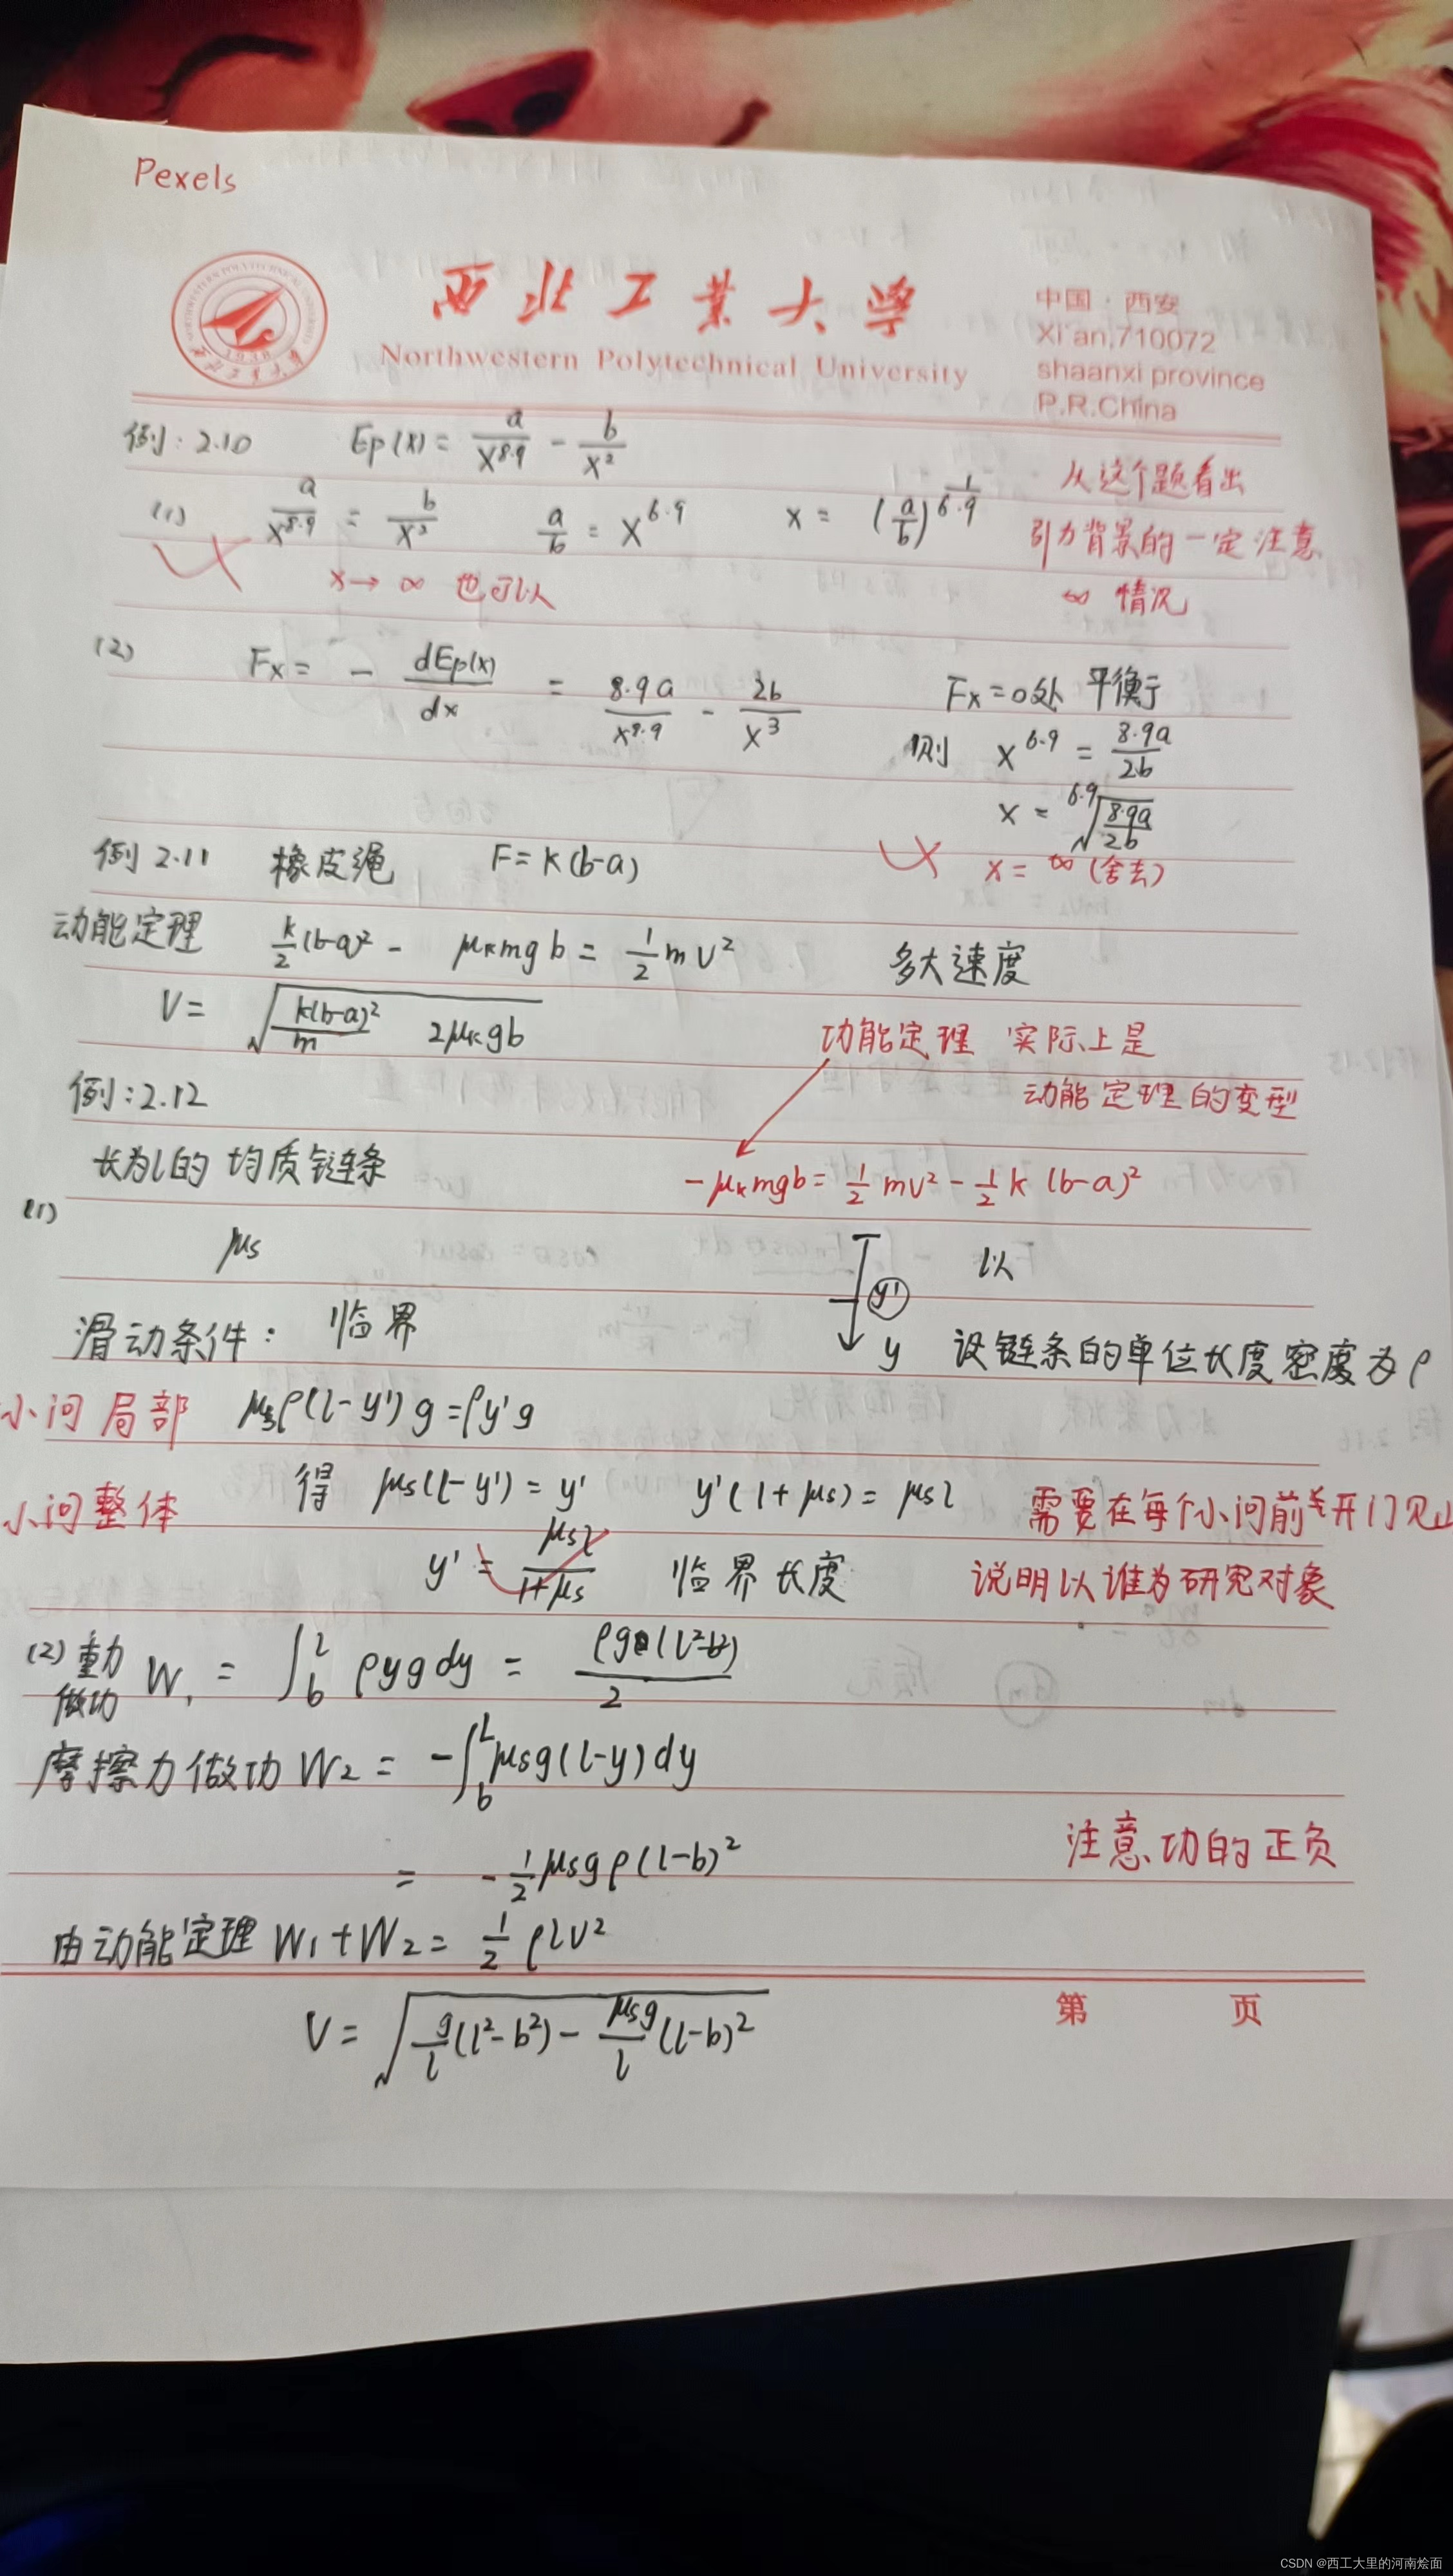 Pexels
西北工业大学
Northwestern Polytechnical University
中国·西安
Xi'an,710072
shaanxi province
P.R.China
例：2.10 Ep(x) = a/x^8.9 - b/x²
从这个题看出
(1) a/x^8.9 = b/x² a/b = x^6.9 x = (a/b)^(1/6.9)
引力背景的一定注意
x→ ∞ 也可以
∞ 情况
(2) Fx = - dEp(x)/dx = 8.9a/x^9.9 - 2b/x³ Fx=0处 平衡
则 x^6.9 = 8.9a/2b
x = ^6.9√(8.9a/2b)
x = ∞ (舍去)
例 2.11 橡皮绳 F=k(b-a)
动能定理 k/2 (b-a)² - μkmgb = 1/2 mv² 多大速度
V = √(k(b-a)²/m 2μkgb)
功能定理 实际上是
动能定理的变型
例：2.12
长为l的 均质链条
-μkmgb = 1/2 mv² - 1/2 k (b-a)²
(1) μs
y' 以
滑动条件： 临界
y 设链条的单位长度密度为ρ
小问 局部 μsρ(l-y')g=ρy'g
小问整体 得 μs(l-y') = y' y'(1+μs) = μsl
需要在每个小问前 开门见山
y' = μsl/1+μs 临界长度
说明以谁为研究对象
(2) 重力做功 W₁ = ∫_b^l ρygdy = ρg(l²-b²)/2
摩擦力做功 W₂ = -∫_b^L μsg(l-y)dy
= -1/2 μsgρ(l-b)²
注意功的正负
由动能定理 W₁+W₂ = 1/2 ρlv²
V = √(g/l (l²-b²) - μsg/l (l-b)²)
第 页
CSDN @西工大里的河南烩面